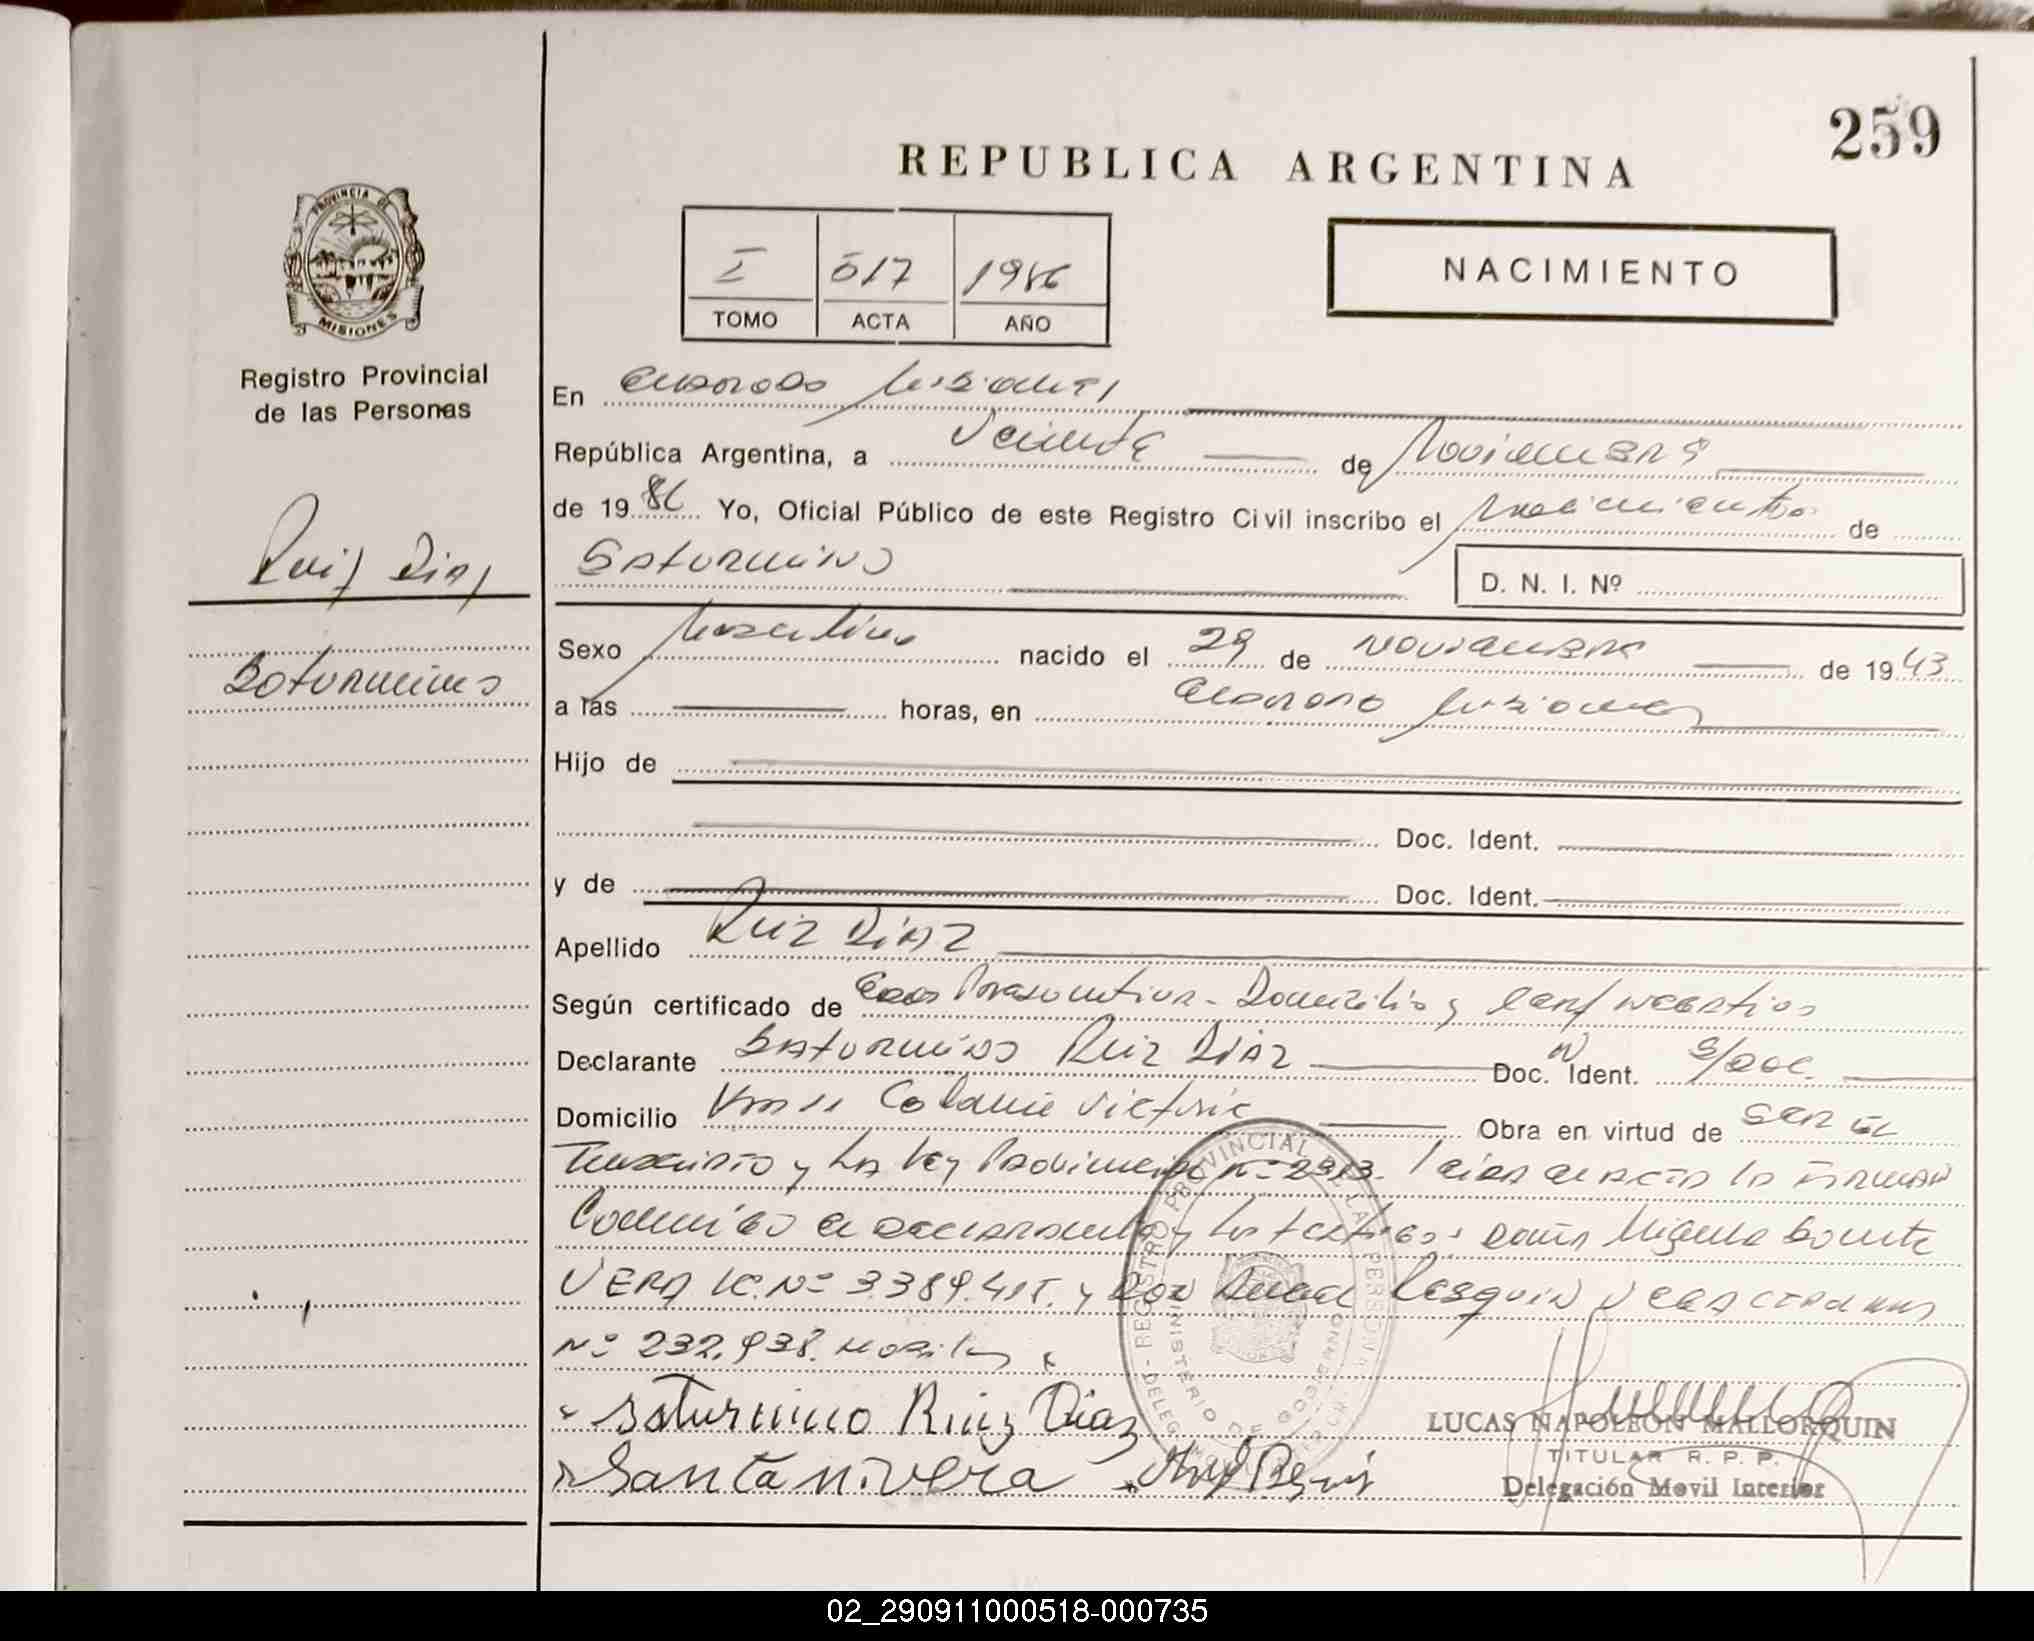 259
REPUBLICA ARGENTINA
I 517 1986
TOMO ACTA AÑO
NACIMIENTO
PROVINCIA DE
MISIONES
Registro Provincial
de las Personas
Ruiz Diaz
Saturnino
En Eldorado Misiones
República Argentina, a Veinte de Noviembre
de 1986 Yo, Oficial Público de este Registro Civil inscribo el Nacimiento de
Saturnino
D. N. I. Nº
Sexo Masculino nacido el 29 de Noviembre de 1943
a las horas, en Eldorado Misiones
Hijo de
Doc. Ident.
y de Doc. Ident.
Apellido Ruiz Diaz
Según certificado de Edad Presuntiva - Domicilio y Cert/ Negativo
Declarante Saturnino Ruiz Diaz Doc. Ident. S/Doc.
Domicilio Km 11 Colonia Victoria Obra en virtud de Ser el
Inscripto y la Ley Provincial Nº 2913. Leida el acta la firman
Conmigo el declarante y los testigos: Doña Miguela
VERA Nº 3.389.415. y Don
Nº 232.938.
Saturnino Ruiz Diaz
Santa nivera
REGISTRO PROVINCIAL DE LAS PERSONAS
MINISTERIO DE GOBIERNO
LUCAS NAPOLEON MALLORQUIN
TITULAR R. P. P.
Delegación Movil Interior
02_290911000518-000735